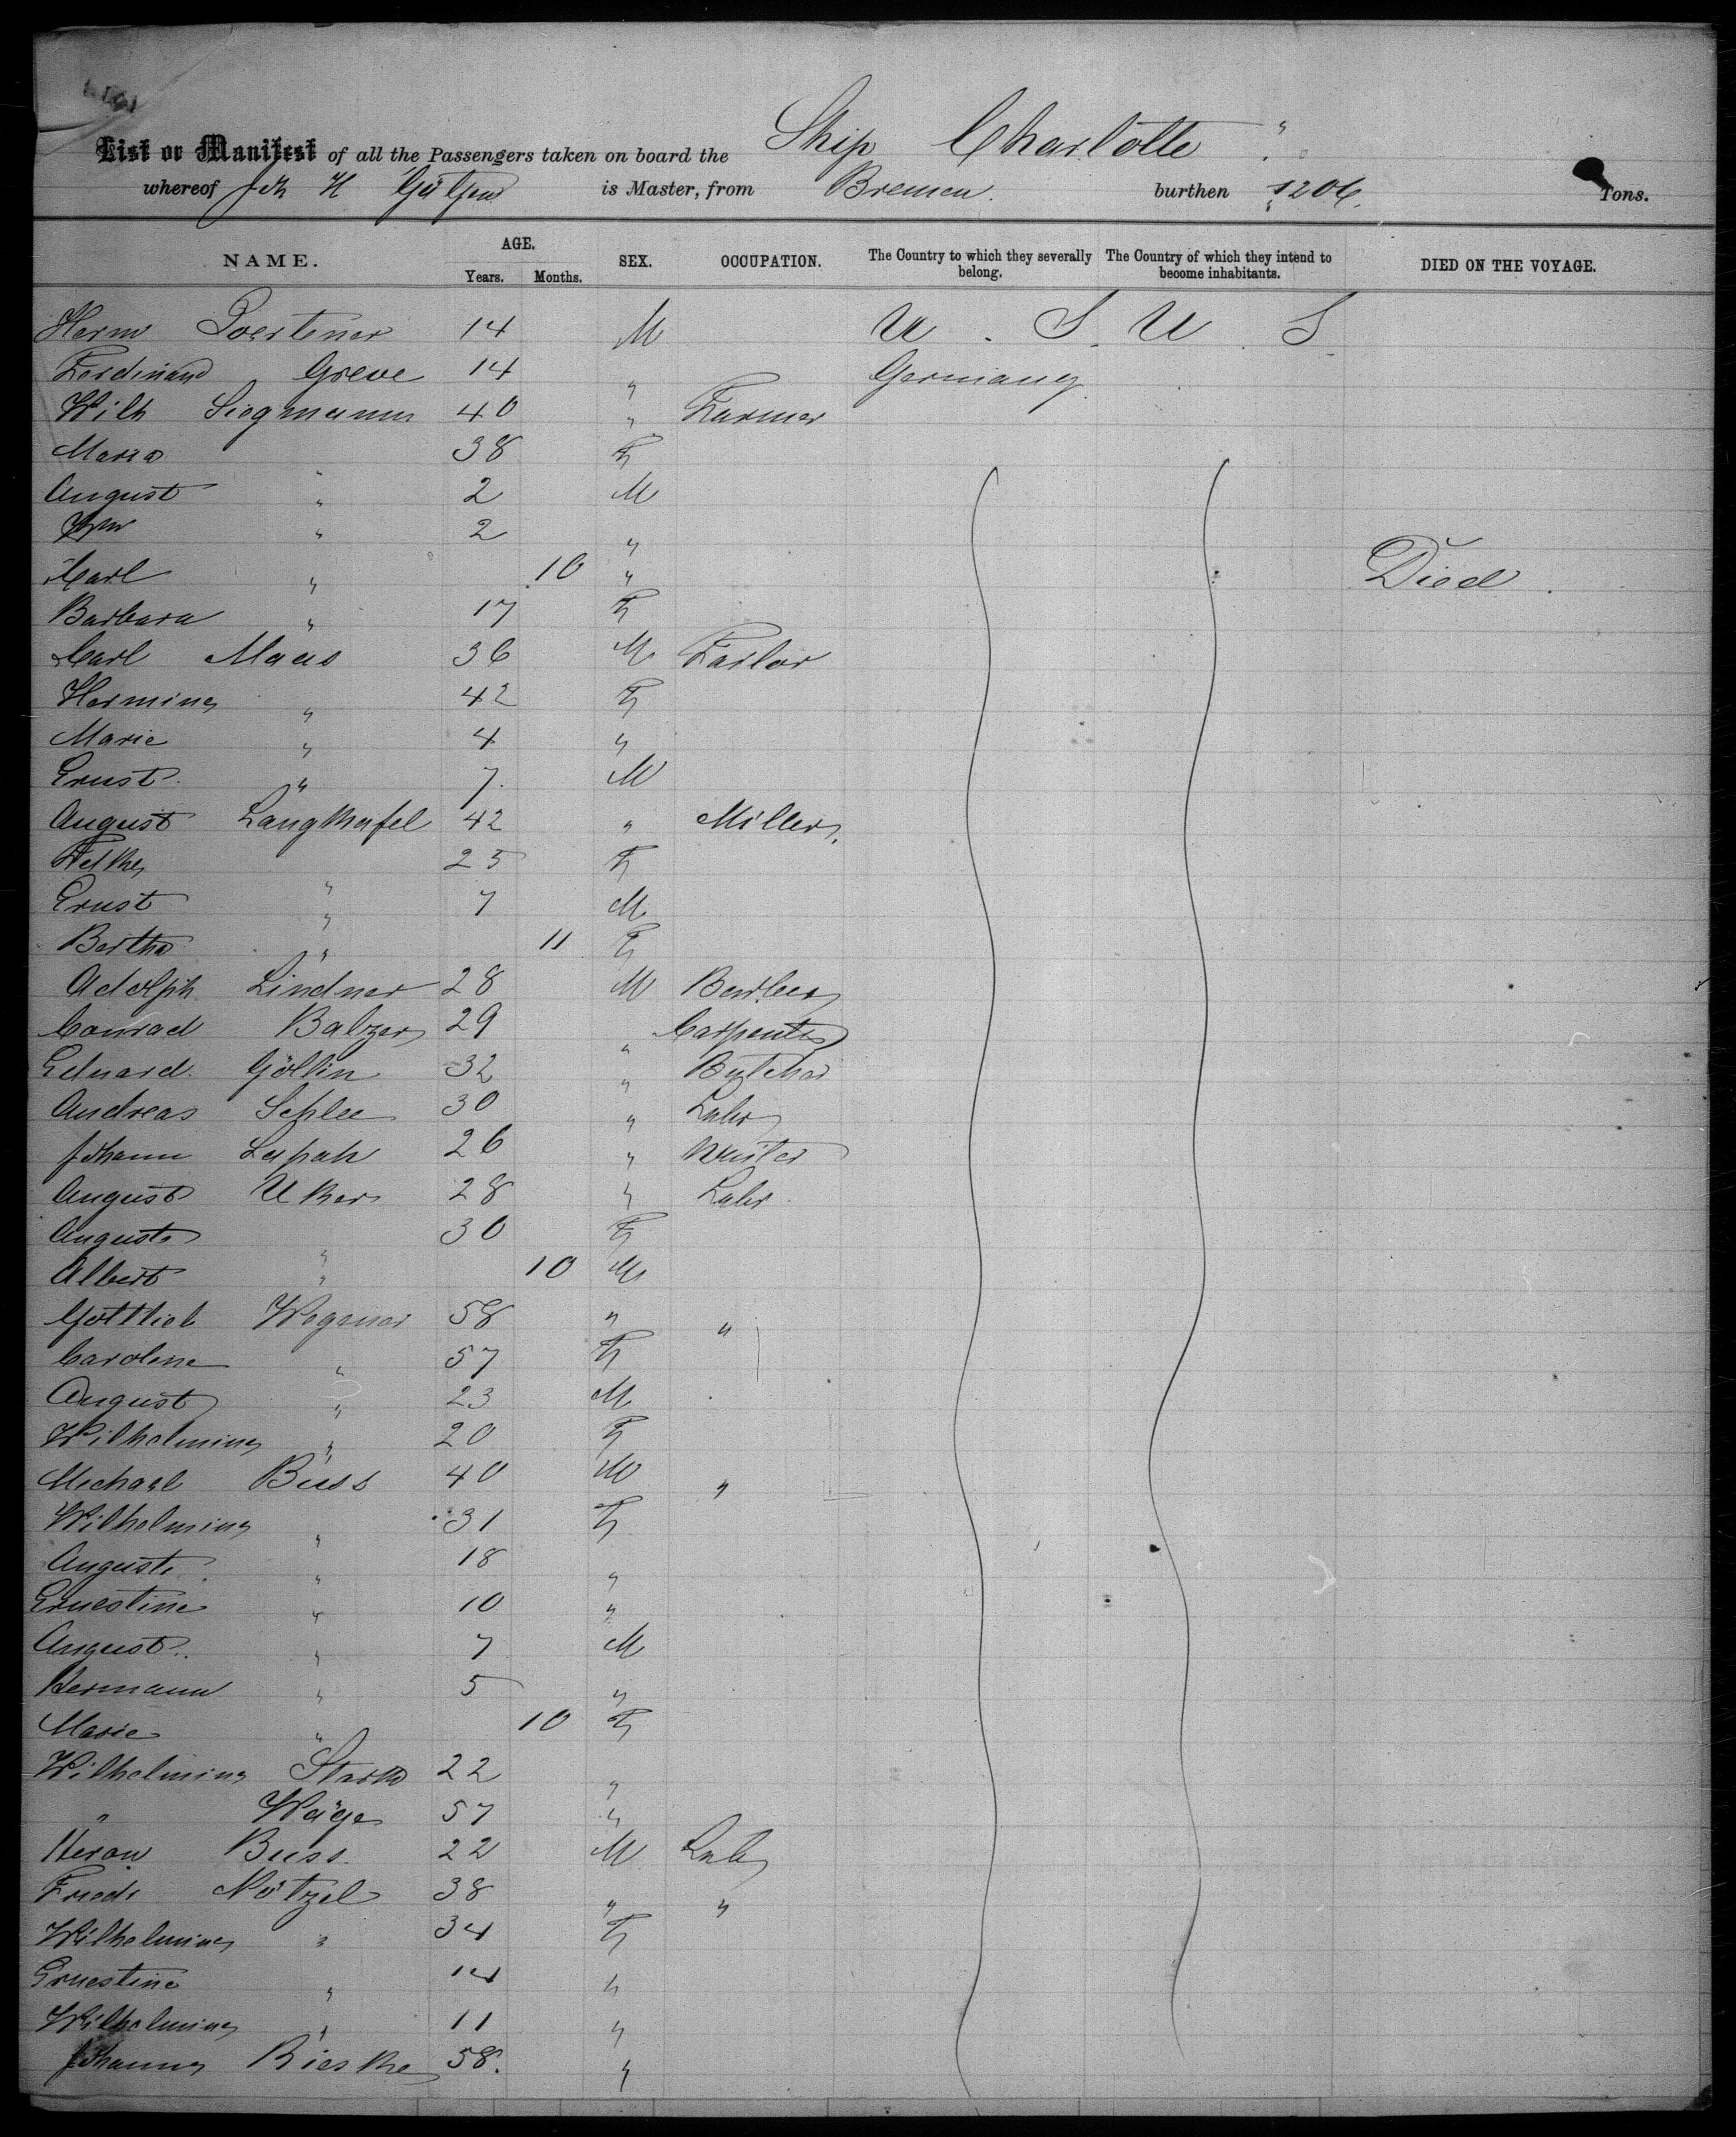 List or Manifest of all the Passengers taken on board the Ship Charlotte
whereof Joh H is Master, from Bremen. burthen 1206. Tons.
NAME. AGE. SEX. OCCUPATION. The Country to which they severally belong. The Country of which they intend to become inhabitants. DIED ON THE VOYAGE.
Years. Months.
Herm Poertener 14 M U. S. U S
Ferdinand Greve 14 " Germany
Wilh Siegmann 40 " Farmer
Maria 38 F
August " 2 M
" 2 "
Carl " 10 " Died.
Barbara " 17 F
Carl Maas 36 M
Hermine " 42 F
Marie " 4 "
Ernst " 7. M
August Langkafel 42 " Miller
25 F
Ernst " 7 M
Bertha " 11 F
Adolph Lindner 28 M Barber
Conrad Balzer 29 " Carpenter
Eduard Göllin 32 " Butcher
Andreas Schlee 30 " Labr
Johann Lapah 26 " Writer
August Uker 28 " Labr.
Auguste " 30 F
Albert " 10 M
Gottlieb Wegener 58 " "
Caroline " 57 F
August " 23 M
Wilhelmine " 20 F
Michael Buss 40 M "
Wilhelmine " 31 F
Auguste " 18 "
Ernestine " 10 "
August " 7 M
Hermann " 5 "
Marie " 10 F
Wilhelmine Stark 22 "
" Wäge 57 "
Buss. 22 M Lab
Friedr Nötzel 38 " "
Wilhelmine " 34 F
Ernestine " 14 "
Wilhelmine " 11 "
Johanne Rieske 58. "